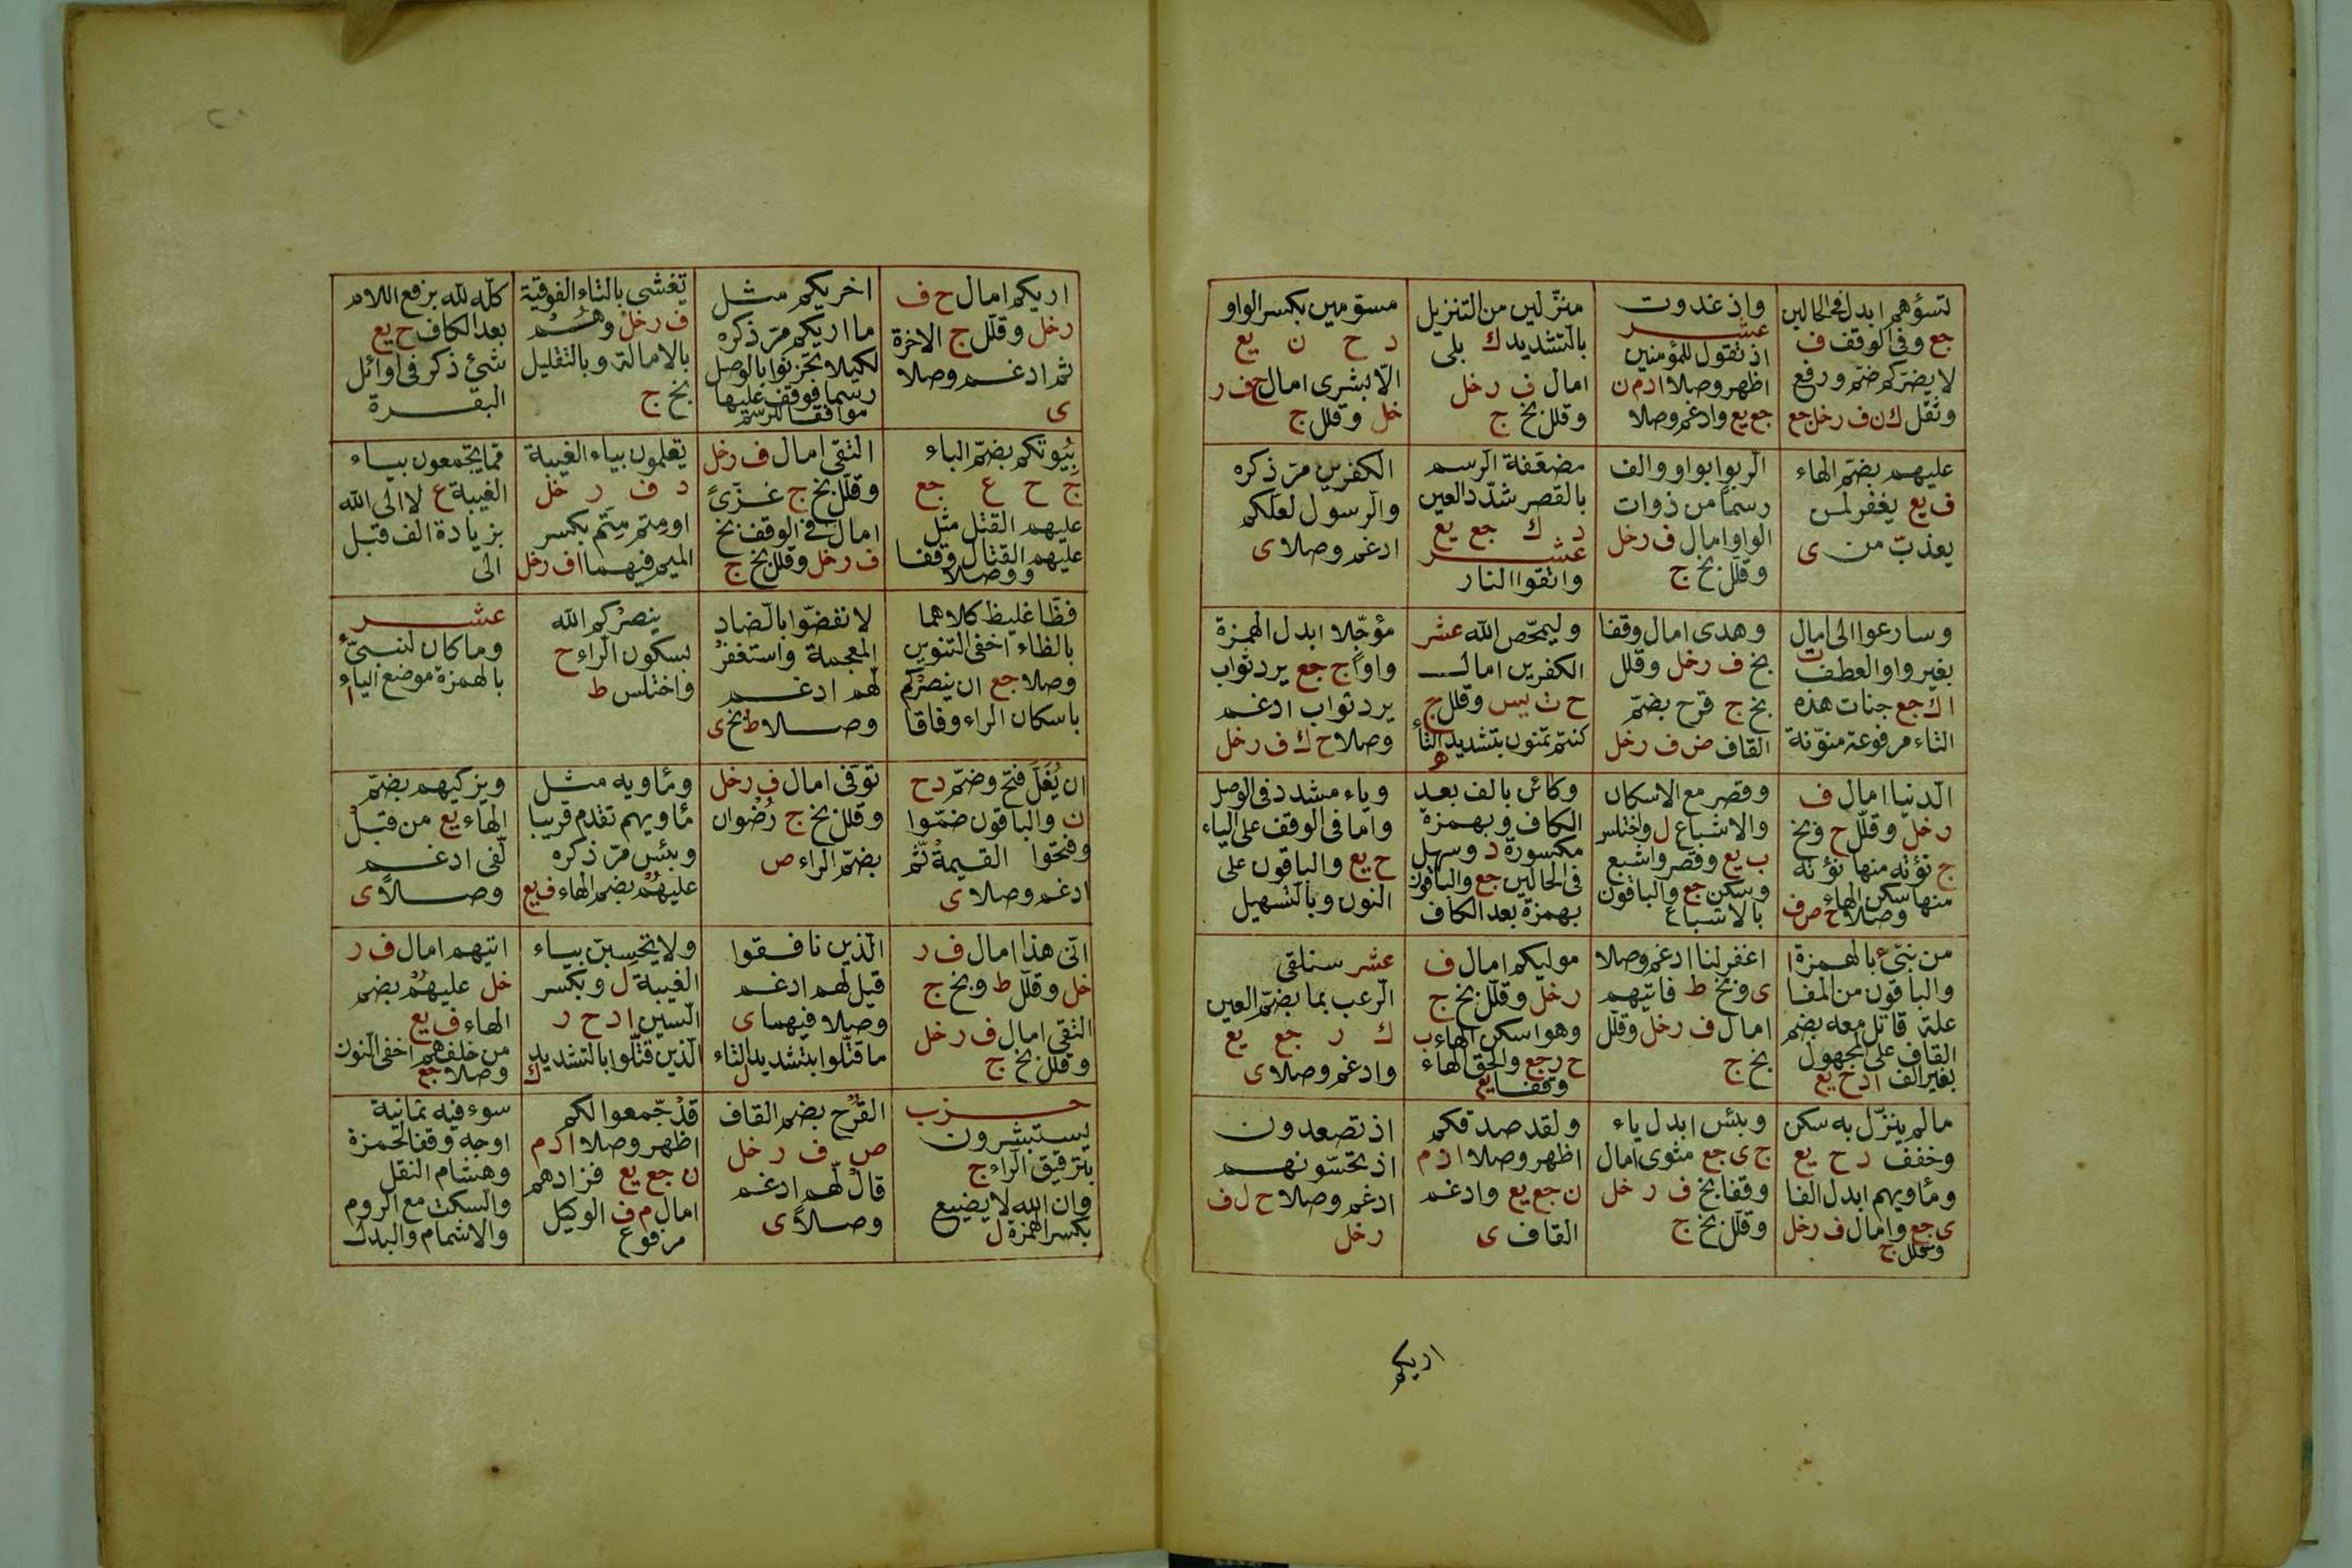 تسؤهم ابدل فى الحالين
جع وفى الوقف ف
لا يضركم ضم ورفع
وثقل ك ن ف ر خل جع
واذ غدوت
عشر
اذ تقول للمؤمنين
اظهر وصلا ا د م ن
جع يع وادغم وصلا
منزّلين من التنزيل
بالتشديد ك بلى
امال ف ر خل
وقلل بخ ج
مسوّمين بكسر الواو
د ح ن يع
الّا بشرى امال ح ف ر
خل وقلل ج
عليهم بضمّ الهاء
ف يع يغفر لمن
يعذب من ى
الربوا بواو والف
رسما من ذوات
الواو امال ف ر خل
وقلل بخ ج
مضعّفة الرسم
بالقصر شدّد العين
د ك جع يع
عشر
واتقوا النار
الكفرين مرّ ذكره
والرسول لعلكم
ادغم وصلا ى
وسارعوا الى امال ت
بغير واو العطف
ا ك جع جنات هذه
التاء مرفوعة منوّنة
وهدى امال وقفا
بخ ف ر خل وقلل
بخ ج قرح بضمّ
القاف ص ف ر خل
وليمحّص الله عشر
الكفرين امال
ح ت يس وقلل ج
كنتم تمنون بتشديد التاء
ه
مؤجّلا ابدل الهمزة
واوا ج جع يرد ثواب
يرد ثواب ادغم
وصلا ح ك ف ر خل
الدنيا امال ف
ر خل وقلّل ح وبخ
ج نؤته منها نؤته
منها سكن الهاء
وصلا ح ص ف
وقصر مع الاسكان
والاشباع ل واختلس
ب يع وقصر واشبع
وسكن جع والباقون
بالاشباع
وكائن بالف بعد
الكاف وبهمزة
مكسورة د وسهل
فى الحالين جع والباقون
بهمزة بعد الكاف
وياء مشدد فى الوصل
واما فى الوقف على الياء
ح يع والباقون على
النون وبالتسهيل
من نبئ بالهمزة ا
والباقون من المفا
علة قاتل معه بضم
القاف على المجهول
بغير الف ا د ح يع
اغفر لنا ادغم وصلا
ى وبخ ط فاتيهم
امال ف ر خل وقلل
بخ ج
موليكم امال ف
ر خل وقلل بخ ج
وهو اسكن الهاء ب
ح ر جع والحق الهاء
وقفا يع
عشر سنلقى
الرعب بما بضمّ العين
ك ر جع يع
وادغم وصلا ى
ما لم ينزّل به سكن
وخفف د ح يع
ومأويهم ابدل الفا
ى جع وامال ف ر خل
وقلل ج
وبئس ابدل ياء
ج ى جع مثوى امال
وقفا بخ ف ر خل
وقلل بخ ج
ولقد صدقكم
اظهر وصلا ا د م
ن جع يع وادغم
القاف ى
اذ تصعدون
اذ تحسّونهم
ادغم وصلا ح ل ف
ر خل
اريكم
اريكم امال ح ف
ر خل وقلل ج الاخرة
ثم ادغم وصلا
ى
اخريكم مثل
ما اريكم مرّ ذكره
لكيلا تحزنوا بالوصل
رسما فوقف عليها
موافقا للرسم
تغشى بالتاء الفوقية
ف ر خل
بالامالة وبالتقليل
بخ ج
كلّه لله برفع اللام
بعد الكاف ح يع
شئ ذكر فى اوائل
البقرة
بيوتكم بضمّ الباء
ج ح ع جع
عليهم القتل مثل
عليهم القتال وقفا
ووصلا
التقى امال ف ر خل
وقلّل بخ ج غزّىً
امال فى الوقف بخ
ف ر خل وقلل بخ ج
يعلمون بياء الغيبة
د ف ر خل
او متم متم بكسر
الميم فيهما ا ف ر خل
مما يجمعون بياء
الغيبة ع لا الى الله
بزيادة الف قبل
الى
فظّا غليظ كلاهما
بالظاء اخفى التنوين
وصلا جع ان ينصركم
باسكان الراء وفاقا
لا نفضّوا بالضاد
المعجمة واستغفر
لهم ادغم
وصلا ط بخ ى
ينصركم الله
بسكون الراء ح
واختلس ط
عشر
وما كان لنبىّ
بالهمزة موضع الياء ا
ان يُغَلّ فتح وضمّ د ح
ن والباقون ضمّوا
وفتحوا القيمة ثّم
ادغم وصلا ى
توفّى امال ف ر خل
وقلل بخ ج رُضوان
بضمّ الراء ص
ومأويه مثل
مأويهم تقدم قريبا
وبئس مرّ ذكره
عليهم بضم الهاء ف يع
ويزكيهم بضمّ
الهاء يع من قبل
لفى ادغم
وصلاً ى
انّى هذا امال ف ر
خل وقلّل ط وبخ ج
التقى امال ف ر خل
وقلل بخ ج
الذين نافقوا
قيل لهم ادغم
وصلا فيهما ى
ما قتّلوا بتشديد التاء
ل
ولا يحسبنّ بياء
الغيبة ل وبكسر
السين ا د ح ر
الذين قتّلوا بالتشديد
ك
اتيهم امال ف ر
خل عليهم بضم
الهاء ف يع
من خلفهم اخفى النون
وصلا جع
حزب
يستبشرون
بترقيق الراء ج
وان الله لا يضيع
بكسر الهمزة ل
القُرح بضم القاف
ص ف ر خل
قال لّهم ادغم
وصلاً ى
قد جّمعوا لكم
اظهر وصلا ا د م
ن جع يع فزادهم
امال م ف الوكيل
مرفوع
سوء فيه ثمانية
اوجه وقفا لحمزة
وهشام النقل
والسكت مع الروم
والاشمام والبدل